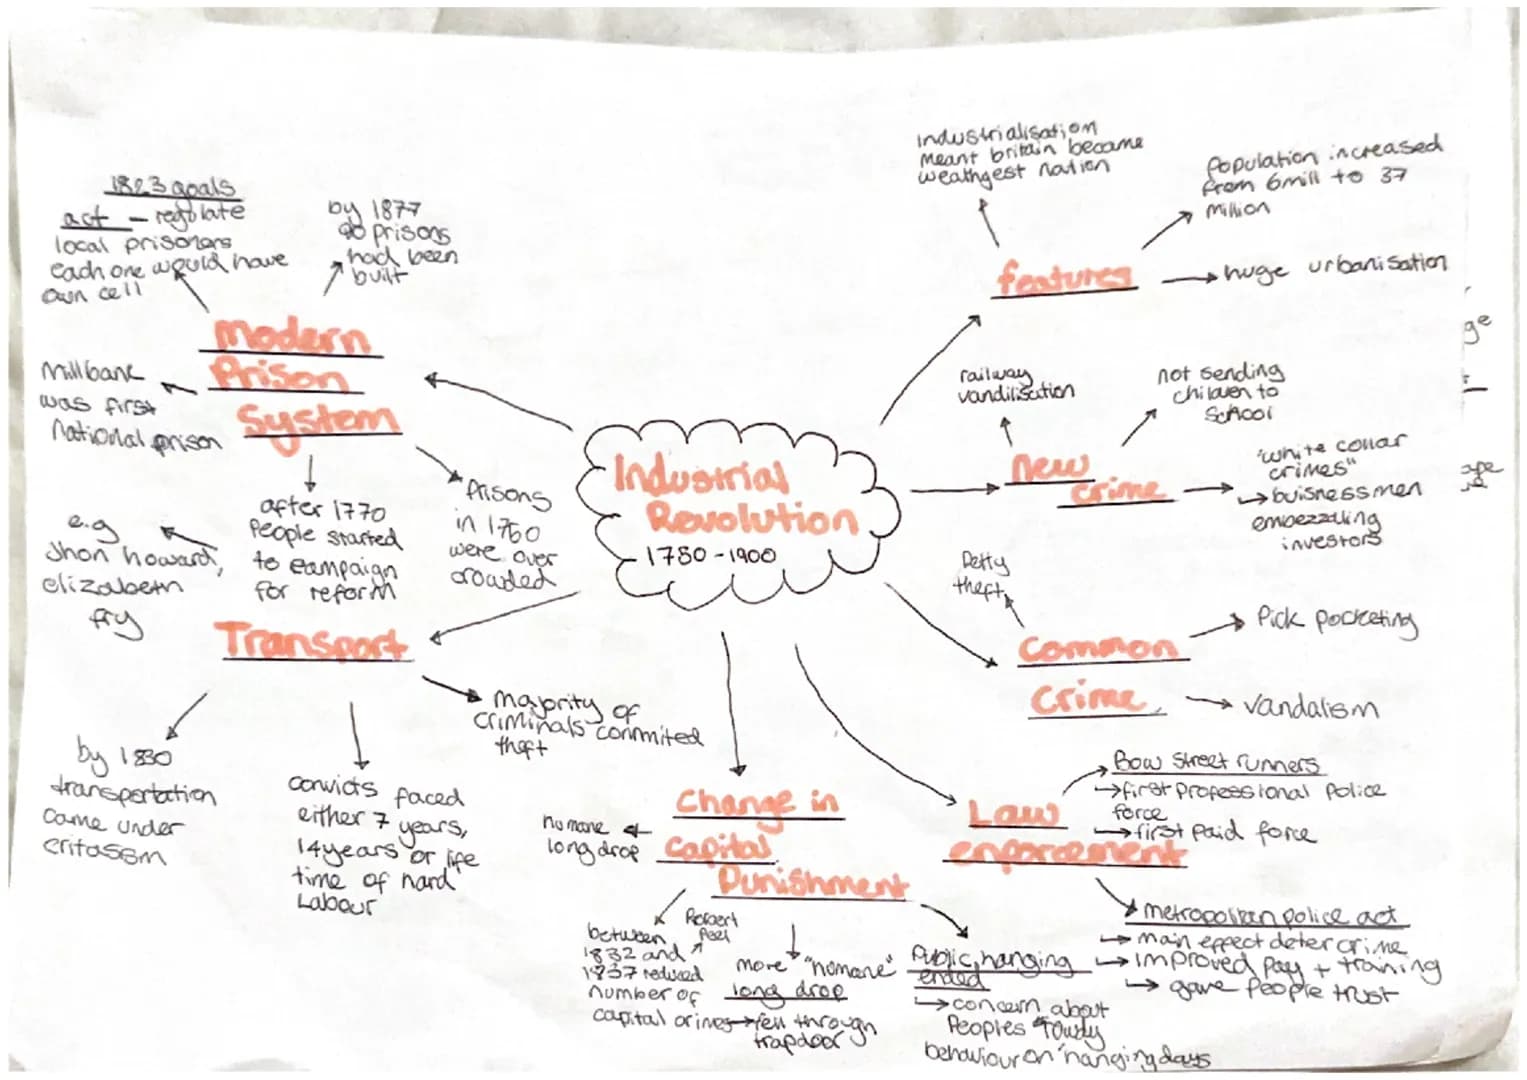 Industrial
Revolution
1750 - 1900
features
industrialisation
meant britain became
weathgest nation
Population increased
from 6mill to 37
million
huge urbanisation
New
crime
railway
vandilisation
not sending
children to
school
"white collar
crimes"
buisnessmen
embezzaling
investors
Common
crime
Petty
theft
Pick pocketing
vandalism
Law
enforcement
Bow Street runners
first professional police
force
first paid force
metropolitan police act
main effect deter crime
improved pay + training
gave people trust
Change in
capital
Punishment
humane
long drop
between
1832 and
1837 reduced
number of
capital crimes
Robert
Peel
more "humane"
long drop
fell through
trapdoor
Public hanging
ended
concern about
Peoples "rowdy
behaviour on hanging days
Transport
majority of
criminals commited
theft
convicts faced
either 7 years,
14 years or life
time of hard
Labour
by 1830
transportation
came under
critassm
Modern
Prison
System
1823 goals
act - regolate
local prisoners
each one would have
own cell
by 1877
90 prisons
had been
built
Millbank
was first
national prison
after 1770
People started
to campaign
for reform
e.g
Jhon howard,
elizabeth
fry
Prisons
in 1750
were over
crowded
ge
ape